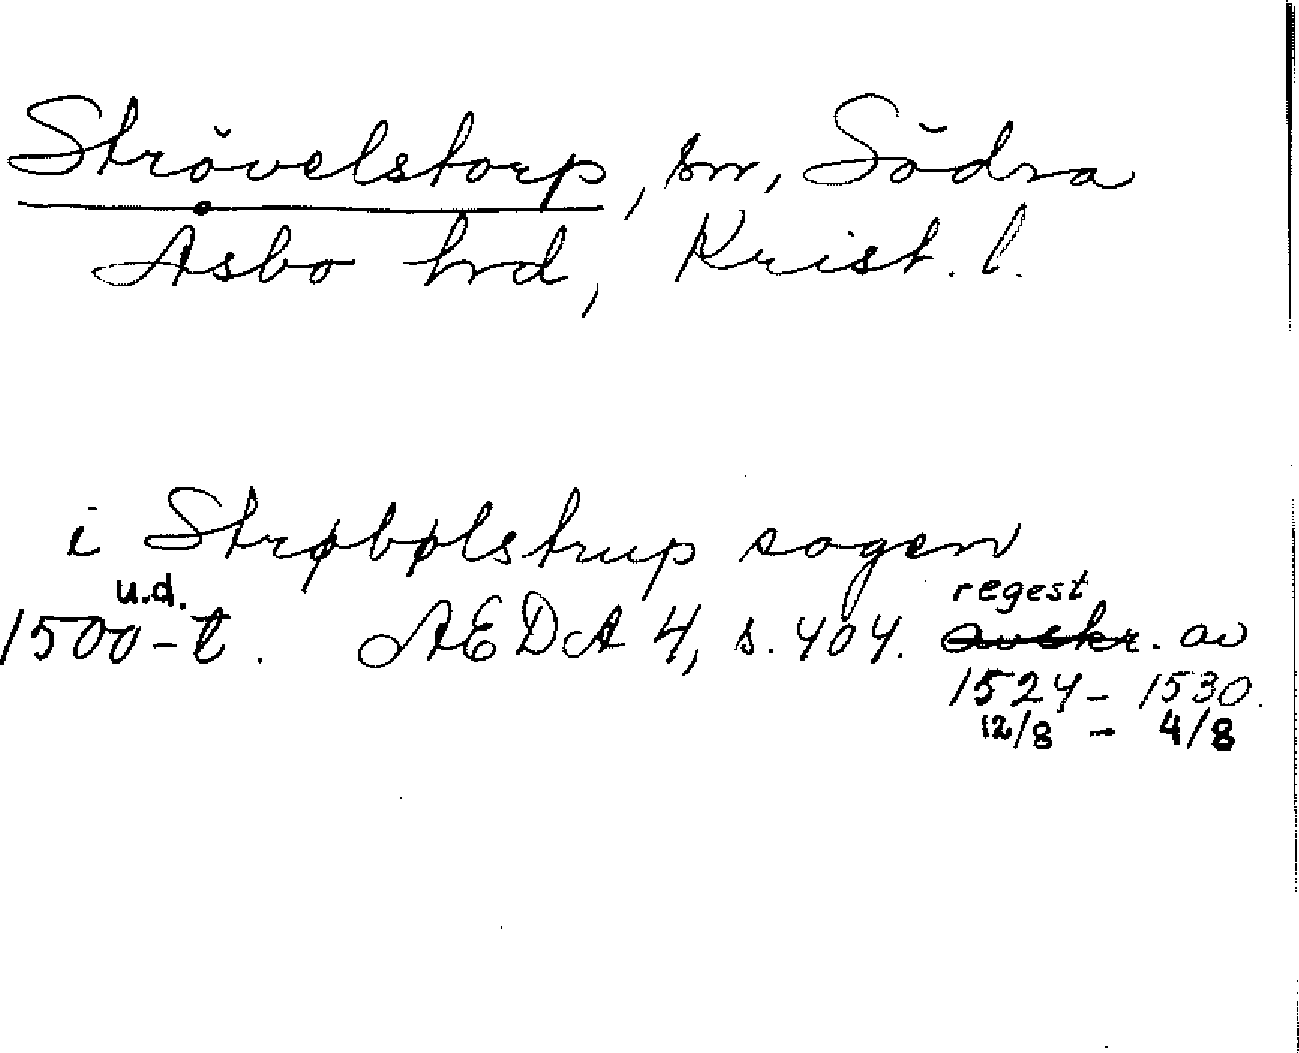 Strövelstorp, sn, Södra
Åsbo hrd, Krist. l.
i Strøbølstrup sogen
u.d. regest
1500-t. AEDA 4, s. 404. avskr. av
1524 - 1530.
12/8 - 4/8